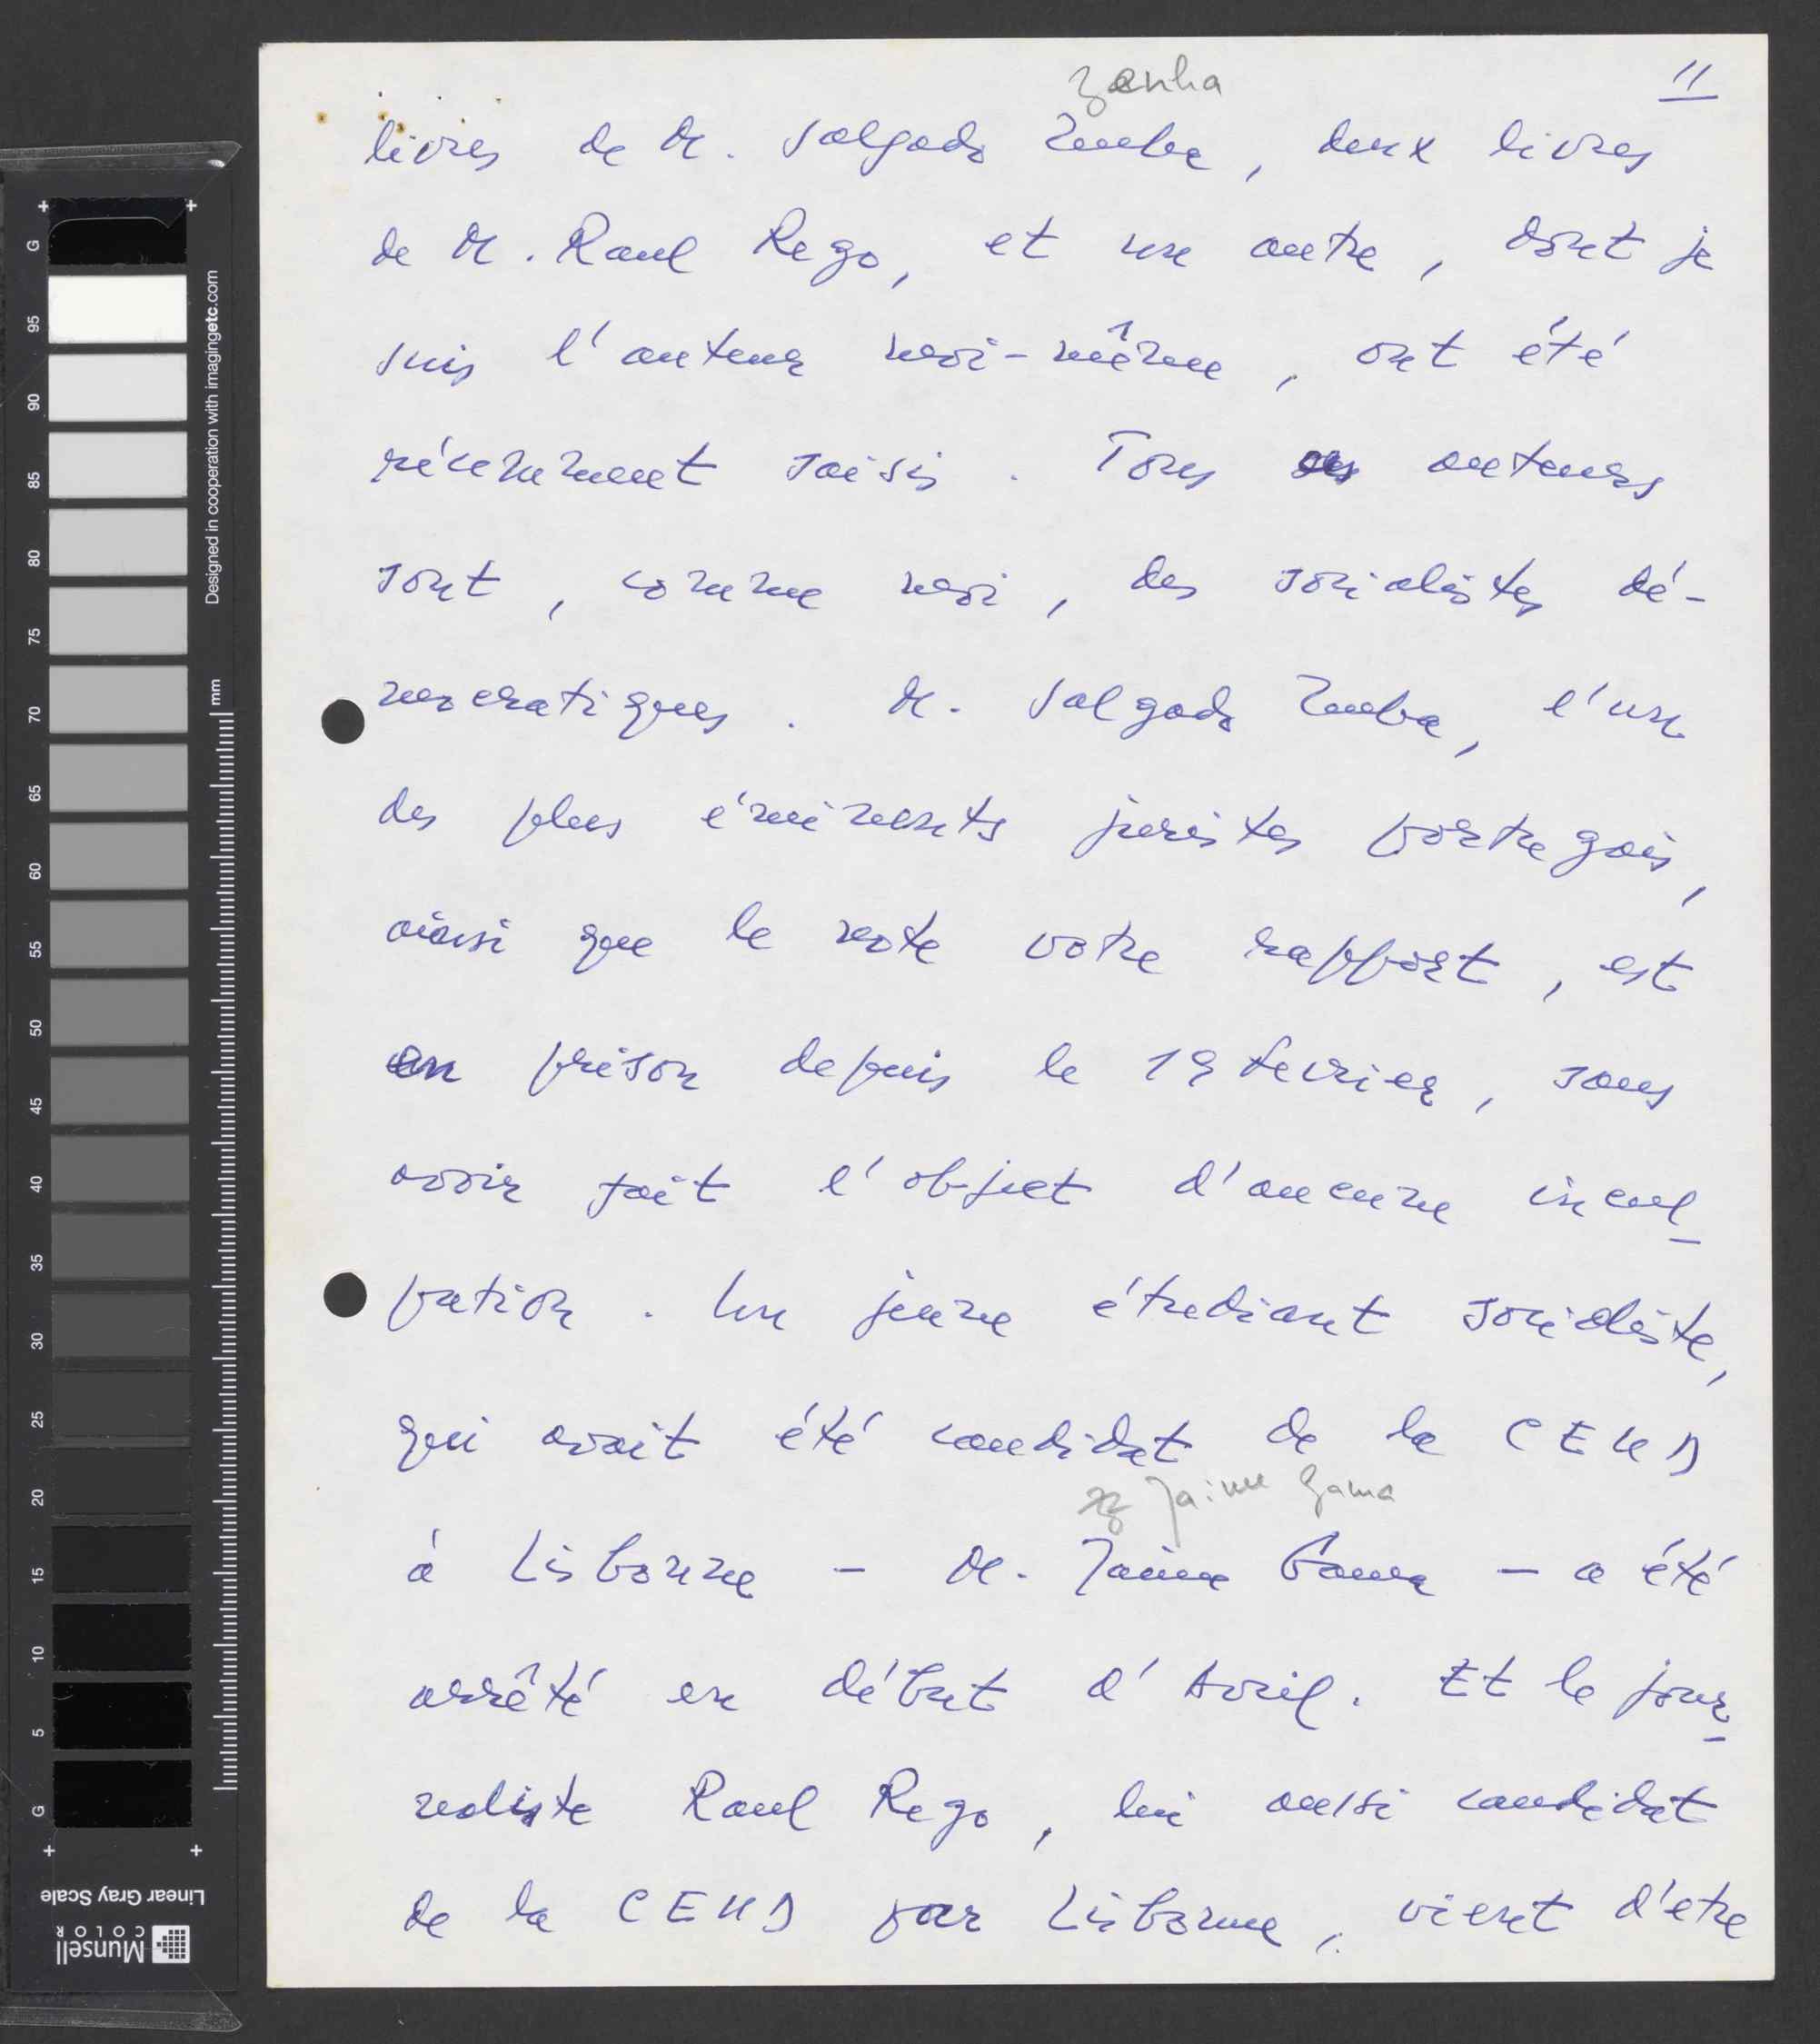 Zenha
11
livres de M. Salgado Zenha, deux livres
de M. Raul Rego, et un autre, dont je
suis l'auteur moi-même, ont été
récemment saisis. Tous ces auteurs
sont, comme moi, des socialistes dé-
mocratiques. M. Salgado Zenha, l'un
des plus éminents juristes portugais,
ainsi que le note votre rapport, est
en prison depuis le 19 fevrier, sans
avoir fait l'objet d'aucune incul-
pation. Un jeune étudiant socialiste,
qui avait été candidat de la CEUD
Jaime Gama
à Lisbonne - M. Jaime Gama - a été
arrêté en début d'Avril. Et le jour-
naliste Raul Rego, lui aussi candidat
de la CEUD par Lisbonne, vient d'etre
G
95
90
85
80
75
70
65
60
55
50
45
40
35
30
25
20
15
10
5
G
mm
Designed in cooperation with imagingetc.com
Linear Gray Scale
Munsell
COLOR